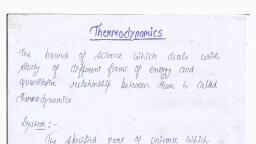 Thermodynamics
The branch of science which deals with
study of different forms of energy and
quantitative relationship between them is called
thermodynamics
System:-
The specified part of universe which